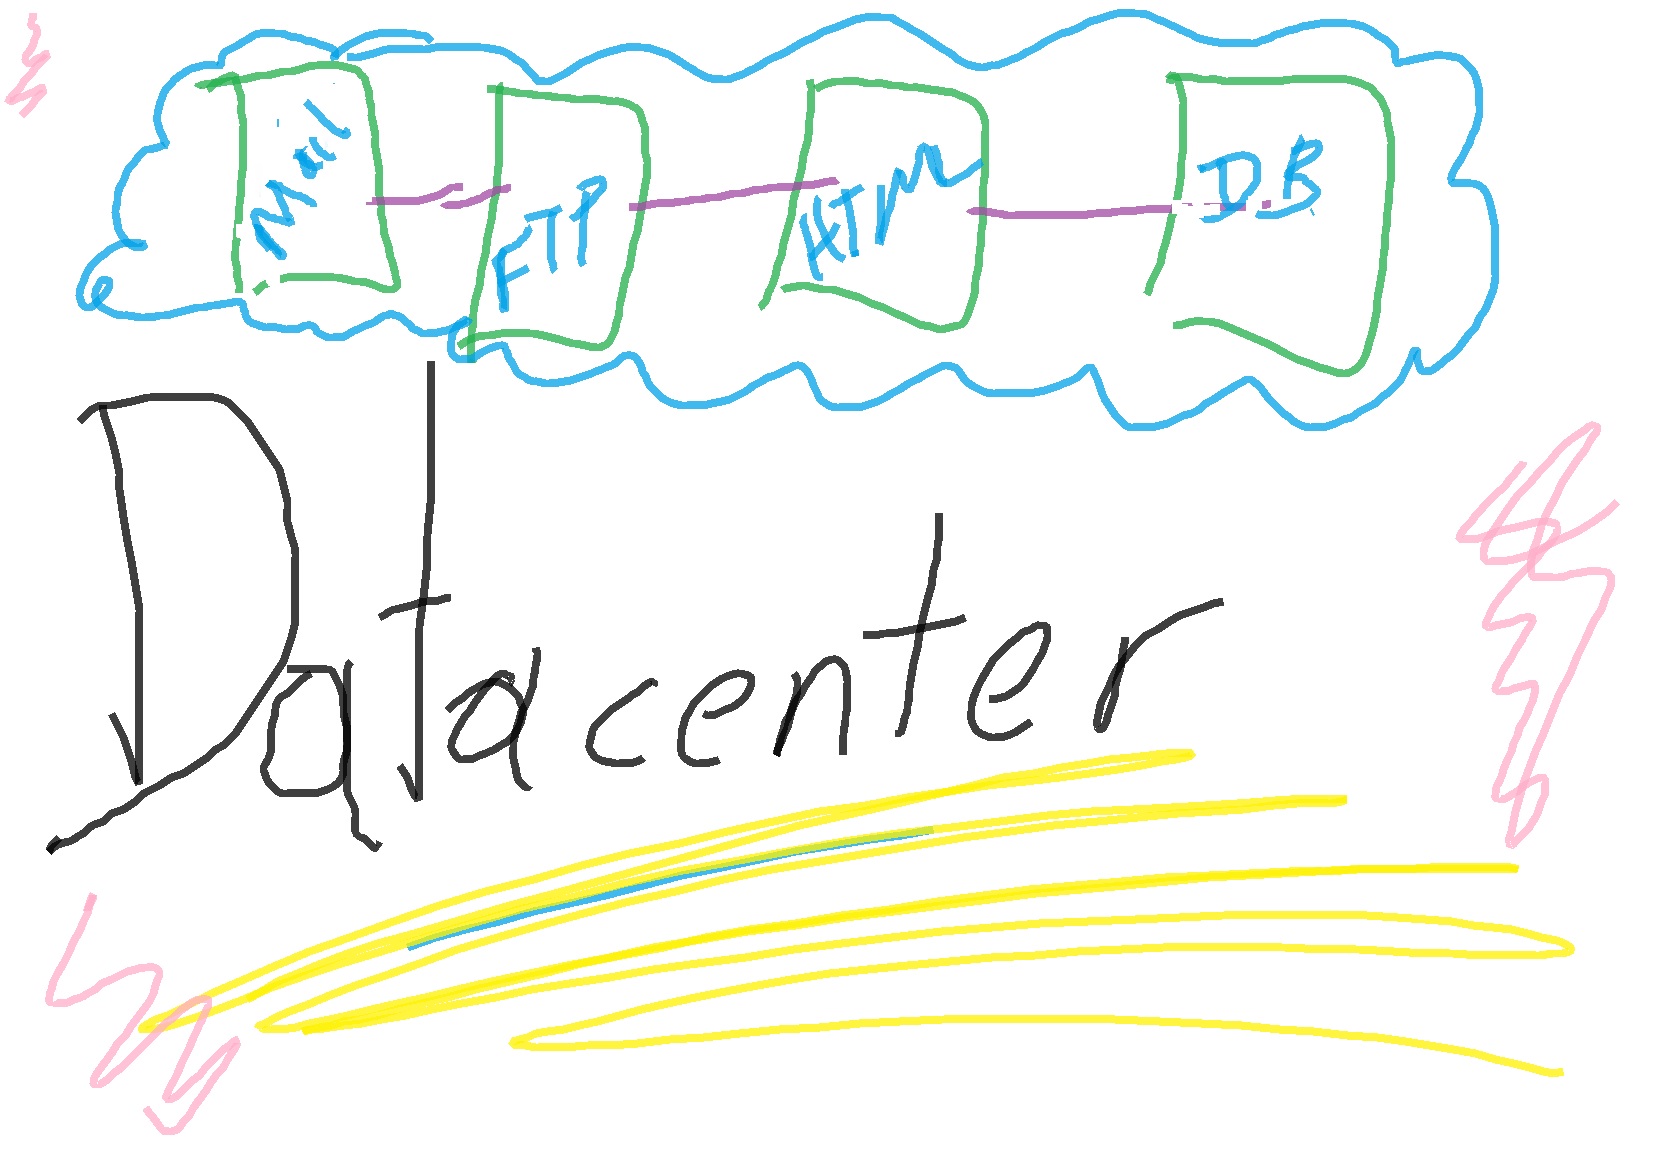 Mail
FTP
HTM
D.B
Datacenter